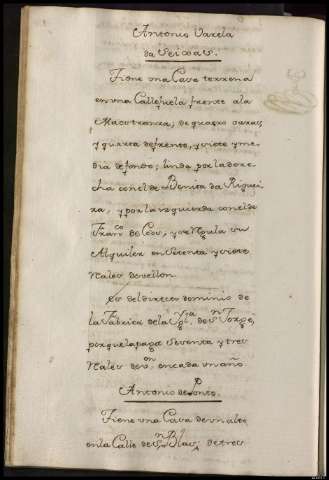 Antonio Varela
da Seixas.
Tiene una Casa terrena
en una Callejuela frente ala
Maestranza; de quatro varas,
y quarta de frente, y siete y me-
dia de fondo; linda por la dere-
cha con el de Benita da Riguei-
ra, y por la izquierda con el de
Fran.co de Cos, y se Regula su
Alquiler en Setenta y siete
Reales de vellon
Es del directo dominio de
la Fabrica de la Ygl.a de S.n Jorge,
por que la paga Sesenta y tres
Reales de v.on en cada un año
Antonio de Ponto.
Tiene una Casa de un alto
en la Calle de S.n Blas, de tres